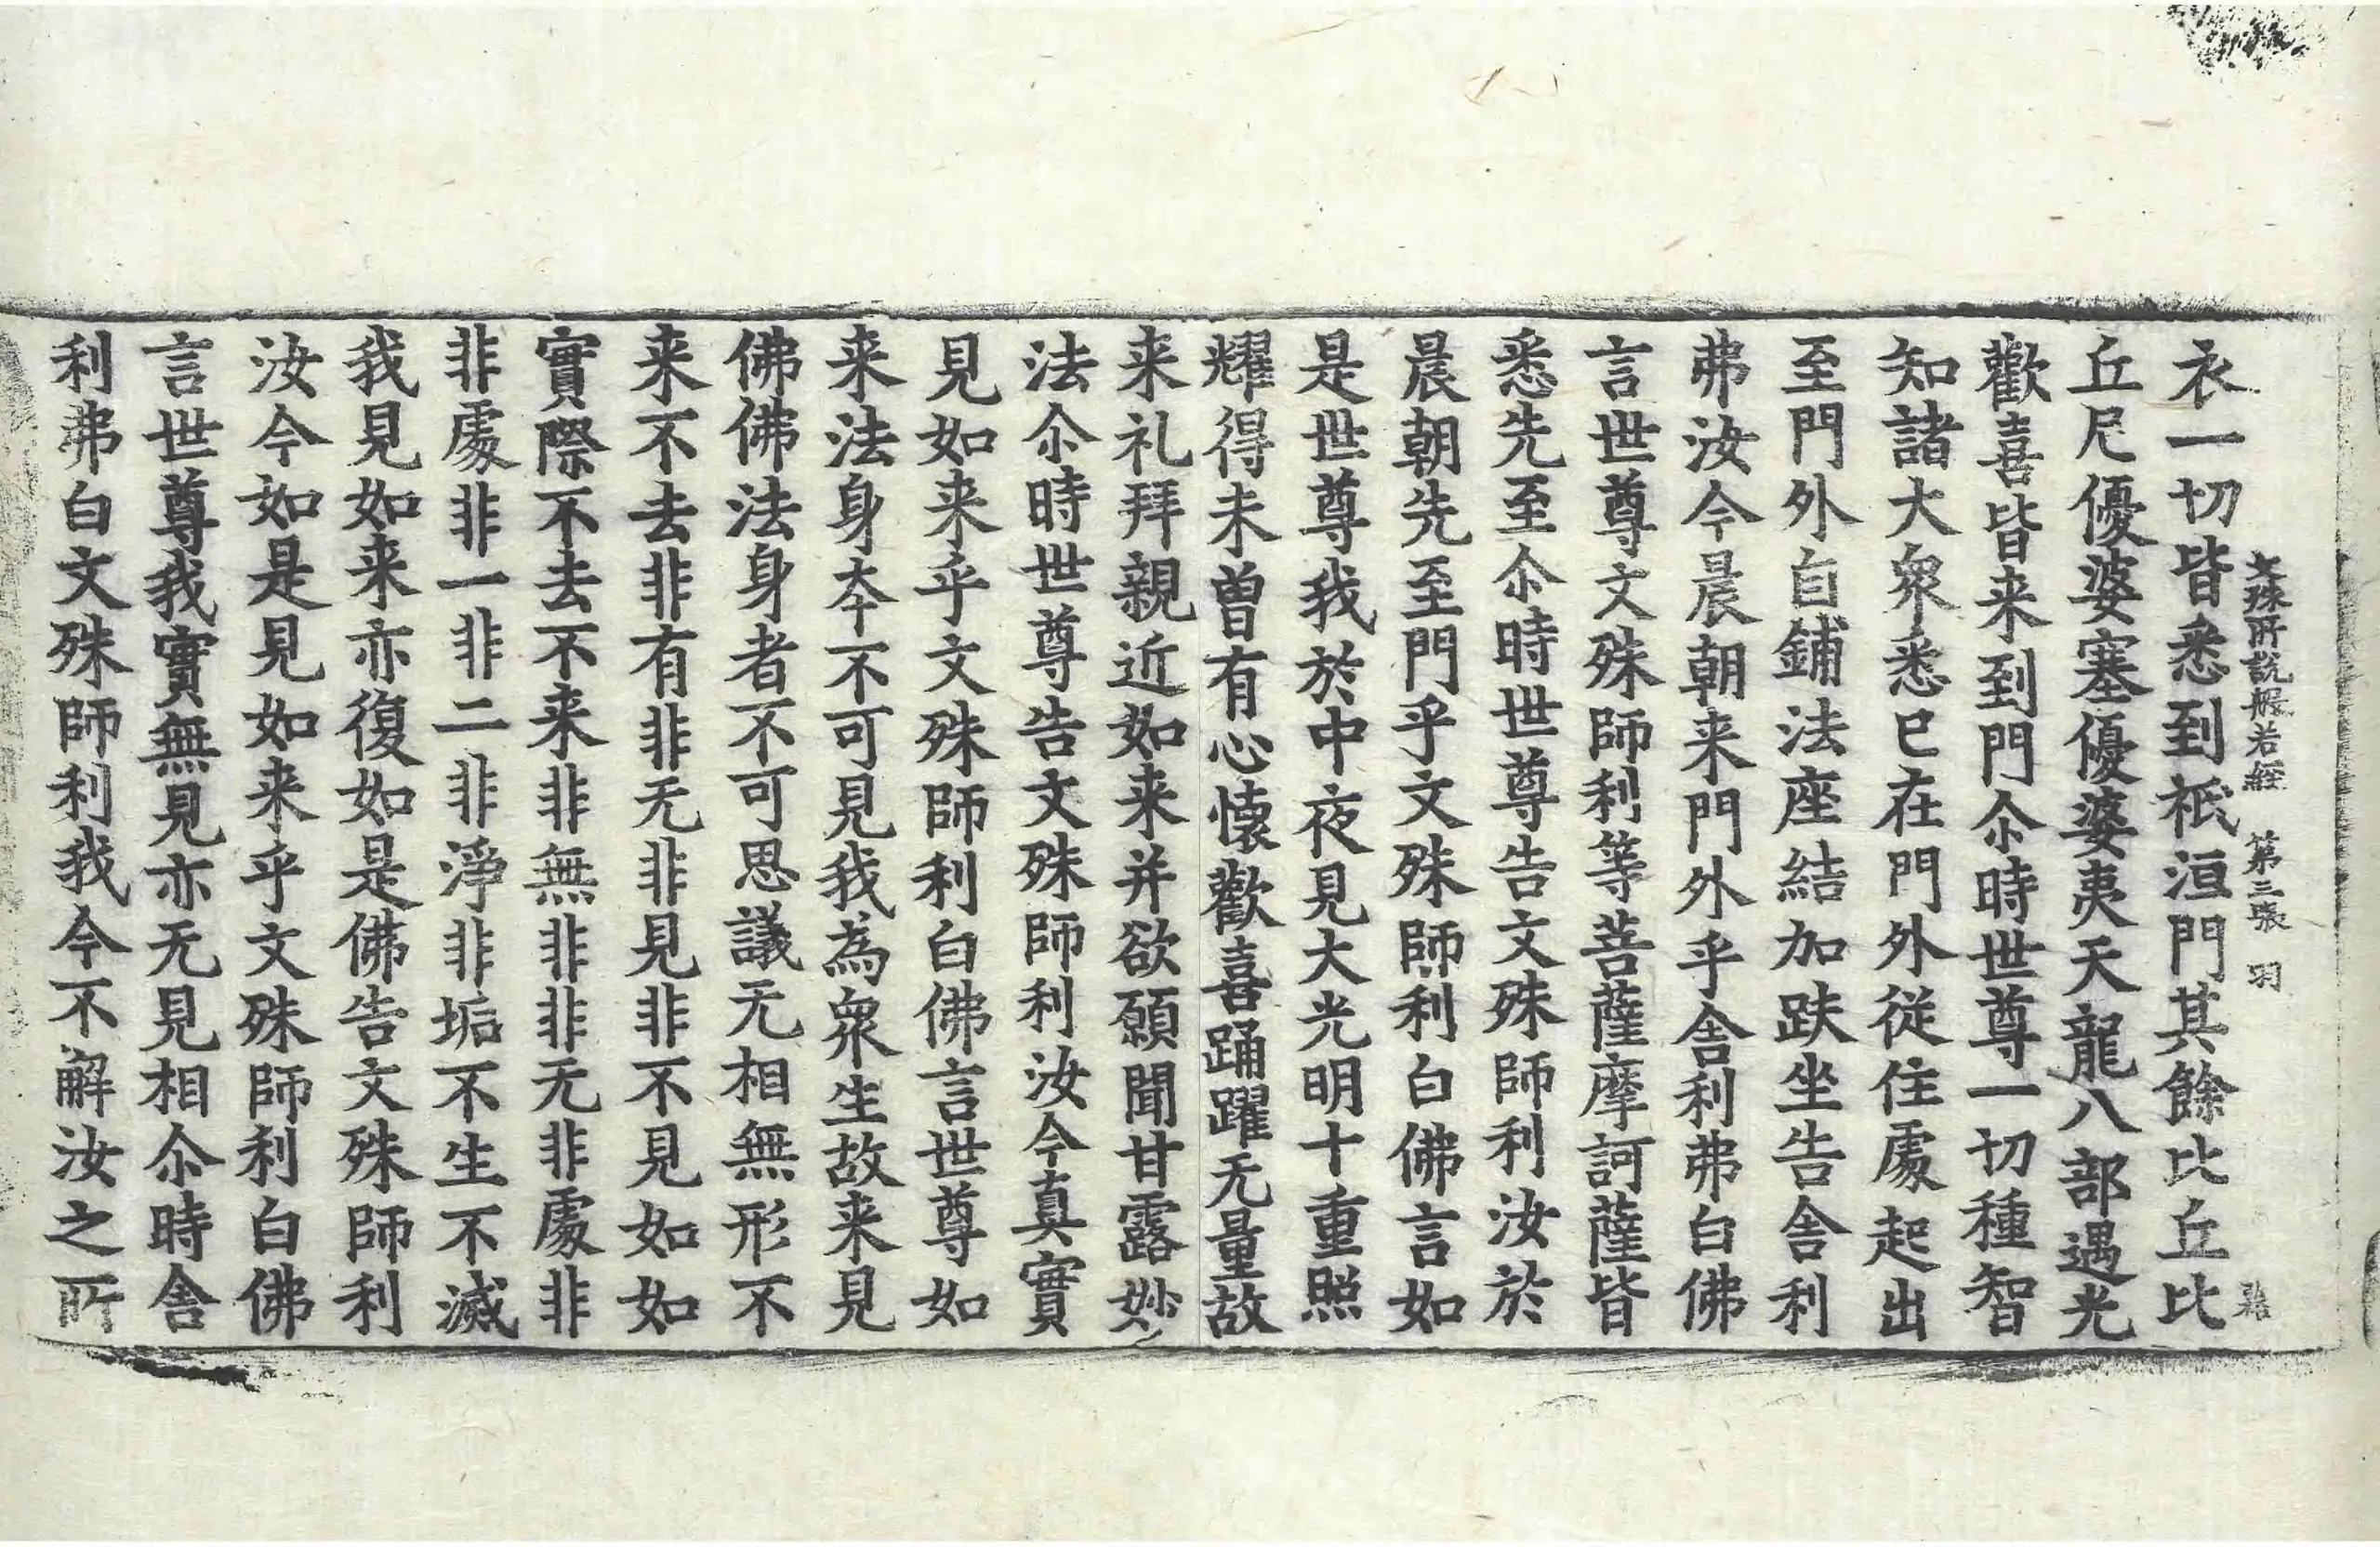 文殊所說般若經 第三張 羽
衣一切皆悉到祇洹門其餘比丘比
丘尼優婆塞優婆夷天龍八部遇光
歡喜皆来到門尒時世尊一切種智
知諸大衆悉已在門外從住處起出
至門外自鋪法座結加趺坐告舎利
弗汝今晨朝来門外乎舎利弗白佛
言世尊文殊師利等菩薩摩訶薩皆
悉先至尒時世尊告文殊師利汝於
晨朝先至門乎文殊師利白佛言如
是世尊我於中夜見大光明十重照
耀得未曽有心懐歡喜踊躍无量故
来礼拜親近如来并欲願聞甘露妙
法尒時世尊告文殊師利汝今真實
見如来乎文殊師利白佛言世尊如
来法身夲不可見我為衆生故来見
佛佛法身者不可思議无相無形不
来不去非有非无非見非不見如如
實際不去不来非無非非无非處非
非處非一非二非淨非垢不生不滅
我見如来亦復如是佛告文殊師利
汝今如是見如来乎文殊師利白佛
言世尊我實無見亦无見相尒時舎
利弗白文殊師利我今不解汝之所